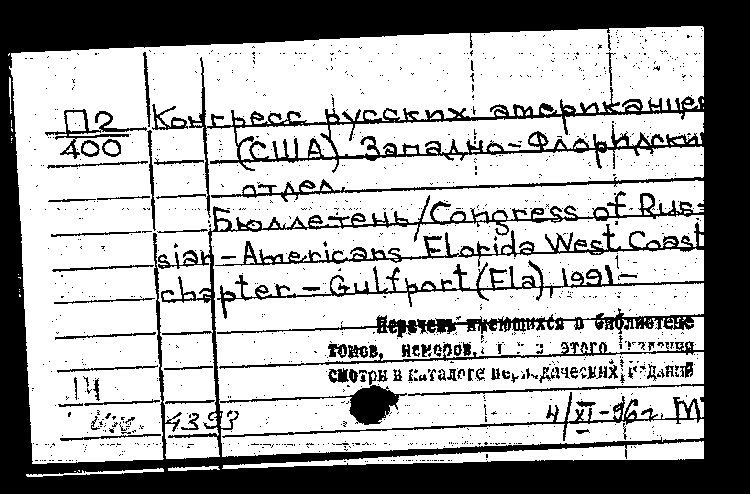 П2 Конгресс русских американце
400 (США). Западно-Флоридски
отдел.
Бюллетень/Congress of Rus-
sian-Americans Florida West Coast
chapter. – Gulfport (Fla), 1991–
Перечень имеющихся в библиотеке
томов, номеров, этого издания
смотри в каталоге периодических изданий
14
Инв. 4393 4/XI-96г.